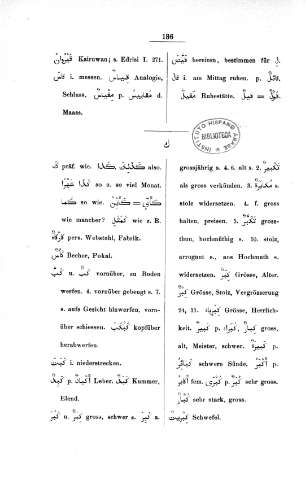 186
قَيْرَوَان Kairuwan; s. Edrisi I. 271.
قَاسَ i. messen. قِيَاس Analogie,
Schluss. مِقْيَاس p. مقاييس d.
Maass.
قَيَّضَ bereiten, bestimmen für لـ.
قَالَ i. am Mittag ruhen. p. قَائِل
قُيَّل. مَقِيل = Ruhestätte.
ك
INSTITUTO HISPANO
BIBLIOTECA
كَ präf. wie. كَذَا, كَذٰلِكَ also.
كَذَا شَهْرًا so u. so viel Monat.
كَمَا so wie. كَأَيِّنْ
wie mancher? كَمِثْلِ wie z. B.
pers. Webstuhl, Fabrik.
كَأْس Becher, Pokal.
كَبَّ u. vornüber, zu Boden
werfen. 4. vornüber gebeugt s. 7.
s. aufs Gesicht hinwerfen, vorn-
über schiessen. كَبْكَبَ kopfüber
herabwerfen.
كَبَتَ i. niederstrecken.
كَبِد p. أَكْبَاد Leber. كَبَد Kummer,
Elend.
كَبِرَ u. كَبُرَ gross, schwer s. كَبِرَ a.
grossjährig s. 4. 6. alt s. 2. تَكْبِير
als gross verkünden. 3. مُكَابَرَة s.
stolz widersetzen. 4. f. gross
halten, preisen. 5. تَكَبُّر gross-
thun, hochmüthig s. 10. stolz,
arrogant s., aus Hochmuth s.
widersetzen. كِبَر Grösse, Alter.
كِبْر Grösse, Stolz, Vergrösserung
24, 11. كِبْرِيَاء Grösse, Herrlich-
keit. كَبِير p. كُبَرَاء, كِبَار gross,
alt, Meister, schwer. كَبِيرَة p.
كَبَائِر schwere Sünde. أَكْبَر p.
أَكَابِر fem. كُبْرَى p. كُبَر sehr gross.
كُبَّار sehr stark, gross.
كِبْرِيت Schwefel.